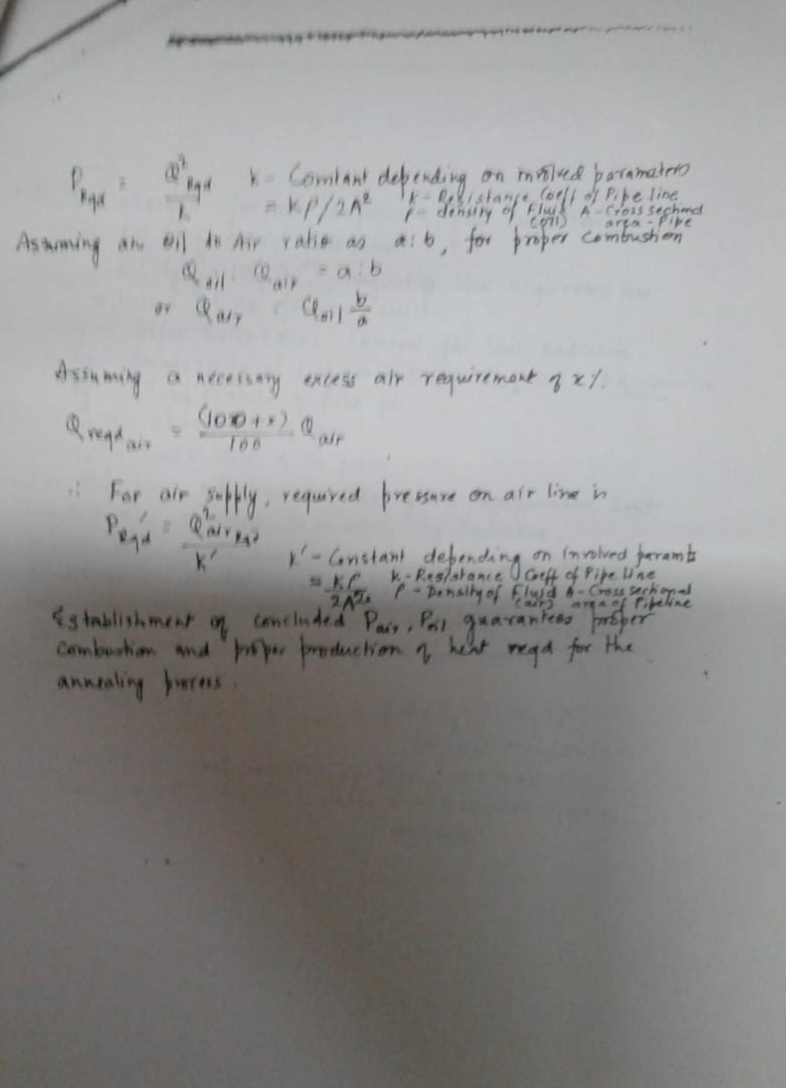 P Rqd = Q² Rqd / k   k - Constant depending on involved parameters
= Kρ/2A²   K - Resistance Coeff of Pipe line
ρ - density of Fluid (oil)   A - Cross sectional area - Pipe
Assuming an Oil to Air ratio as a:b, for proper combustion
Q oil : Q air = a:b
or Q air = Q oil b/a
Assuming a necessary excess air requirement of x%.
Q reqd air = (100+x)/100 Q air
∴ For air supply, required pressure on air line is
P Rqd' = Q² air Rqd / k'
k' - Constant depending on involved paramts
= Kρ/2A²   K - Resistance Coeff of Pipe line
ρ - Density of Fluid (air)   A - Cross sectional area of Pipeline
Establishment of concluded Pair, Poil guarantees proper
combustion and proper production of heat reqd for the
annealing process.